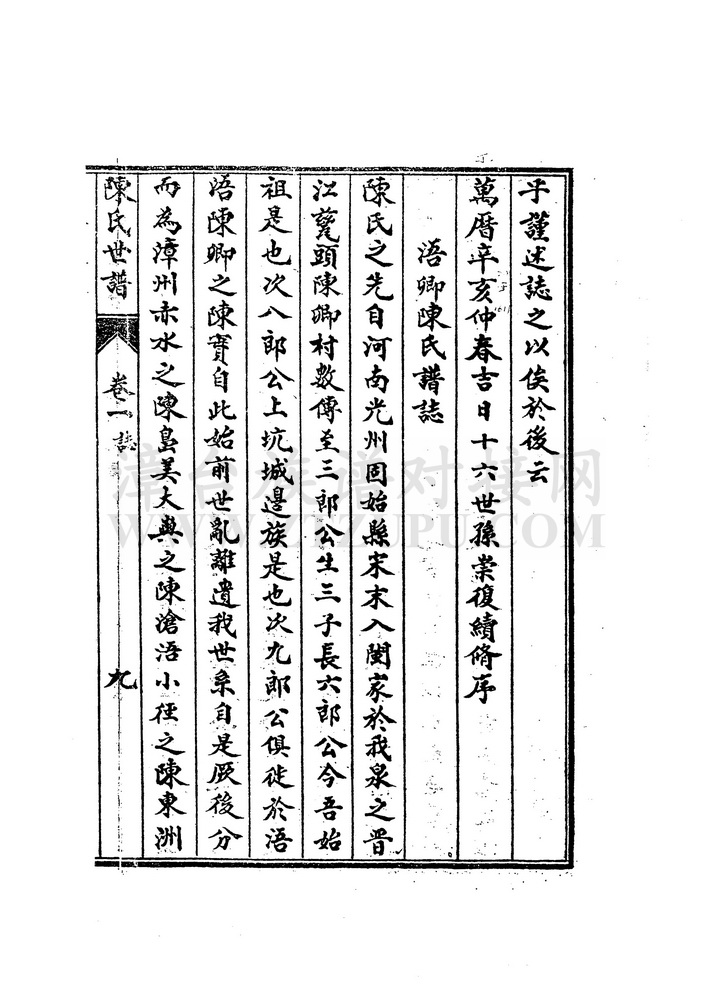 乎謹述誌之以俟於後云
萬曆辛亥仲春吉日十六世孫崇復續脩序
浯卿陳氏譜誌
陳氏之先自河南光州固始縣宋末入閩家於我泉之晋
江甕頭陳卿村數傳至三郎公生三子長六郎公今吾始
祖是也次八郎公上坑城邊族是也次九郎公俱徙於浯
浯陳卿之陳實自此始前世亂離遺我世系自是厥後分
而為漳州赤水之陳皐美大與之陳滄浯小徑之陳東洲
陳氏世譜 卷一 誌 九
漳台族谱对接网
WWW.ZTZUPU.COM